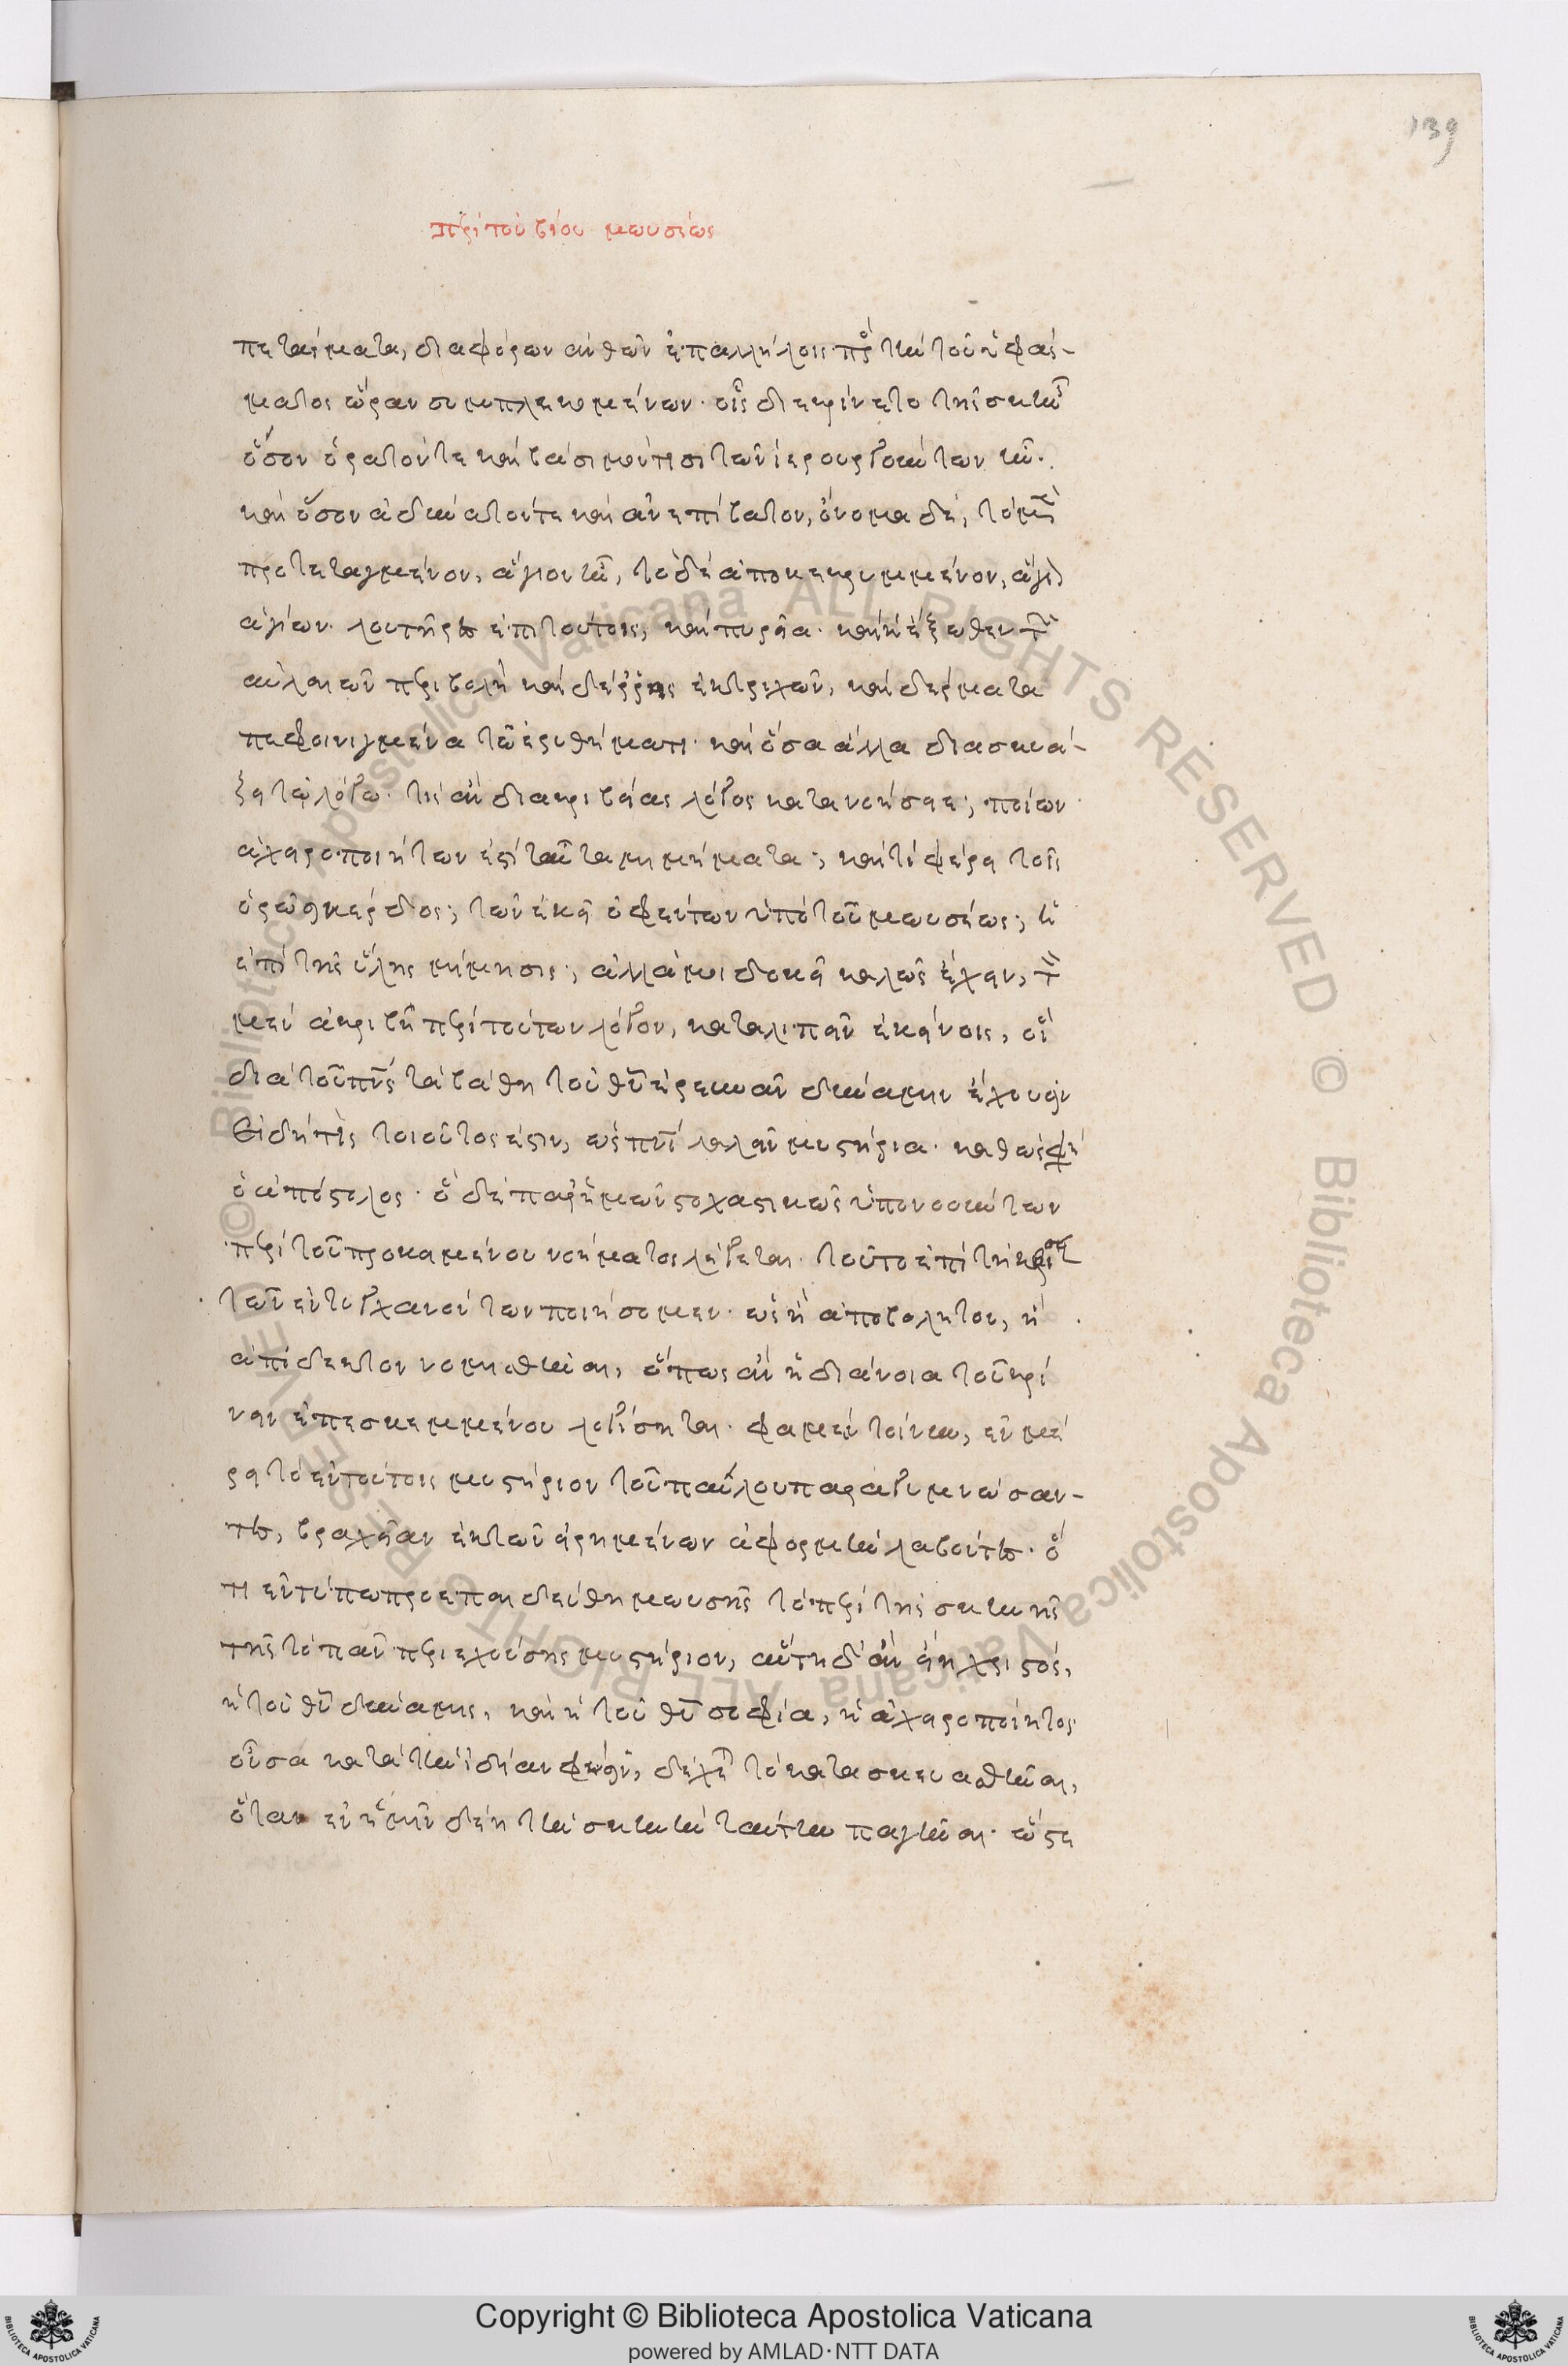 139
περὶ τοῦ βίου μωυσέως
πετάσματα, διαφόρων ἀνθῶν ἐπαλλήλοις πρὸς τὴν τοῦ ὑφάσ-
ματος ὥραν συμπλεκομένων· οἷς διεκρίνετο τῆς σκηνῆς
ὅσον ὁρατόν τε καὶ βάσιμόν τισι τῶν ἱερουργούντων ἦν·
καὶ ὅσον ἄδυτόν τε καὶ ἀνεπίβατον, ὄνομα δὲ, τὸ μὲν
προτεταγμένον, ἅγιον ἦν, τὸ δὲ ἀποκεκρυμμένον, ἅγιον
ἁγίων· λουτῆρες ἐπὶ τούτοις, καὶ πυρεῖα· καὶ ἡ ἔξωθεν τῶν
αὐλαιῶν περιβολὴ καὶ δέρρεις ἐκ τριχῶν, καὶ δέρματα
πεφοινιγμένα τῷ ἐρυθήματι· καὶ ὅσα ἄλλα διασκευά-
ζει τῷ λόγῳ· τίς ἂν δι' ἀκριβείας λόγος κατανοήσειε; ποίων
ἀχειροποιήτων ἐστὶ ταῦτα μιμήματα; καὶ τί φέρει τοῖς
ὁρῶσι κέρδος; τῶν ἐκεῖ ὀφθέντων ὑπὸ τοῦ μωυσέως; ἡ
ἐπὶ τῆς ὕλης μίμησις; ἀλλά μοι δοκεῖ καλῶς ἔχειν, τὸν
μὲν ἀκριβῆ περὶ τούτων λόγον, καταλιπεῖν ἐκείνοις, οἳ
διὰ τοῦ πνς τὰ βάθη τοῦ θῦ ἐρευνᾶν δύναμιν ἔχουσιν
εἰ δή τις τοιοῦτός ἐστιν, ὡς πνι λαλεῖν μυστήρια· καθώς φησιν
ὁ ἀπόστολος· ὃ δὲ παρ' ἡμῶν στοχαστικῶς ὑπονοούντων
περὶ τοῦ προκειμένου νοήματος λέγεται· τοῦτο ἐπὶ τῇ κρίσει
τῶν ἐντυγχανόντων ποιήσομεν· ὡς ἢ ἀπόβλητον, ἢ
ἀπίδεκτον νομισθῆναι, ὅπως ἂν ἡ διάνοια τοῦ κρί
νειν ἐπεσκεμμένου λογίσηται· φαμὲν τοίνυν, ἐν μέ
ρει τὸ ἐν τούτοις μυστήριον τοῦ παύλου παραγυμνώσαν-
τος, βραχεῖαν ἐκ τῶν εἰρημένων ἀφορμὴν λαβόντες· ὅ
τι ἐν τύπῳ προεπαιδεύθη μωυσῆς τὸ περὶ τῆς σκηνῆς
τῆς τὸ πᾶν περιεχούσης μυστήριον, αὕτη δ' ἂν εἴη χριστός,
ἡ τοῦ θῦ δύναμις, καὶ ἡ τοῦ θῦ σοφία, ἡ ἀχειροποίητος
οὖσα κατὰ τὴν ἰδίαν φύσιν, δέχεται τὸ κατασκευασθῆναι,
ὅταν ἐν ἡμῖν δέῃ τὴν σκηνὴν ταύτην παγῆναι· ὥστε
Copyright © Biblioteca Apostolica Vaticana
powered by AMLAD·NTT DATA
© Biblioteca Apostolica Vaticana ALL RIGHTS RESERVED © Biblioteca Apostolica Vaticana ALL RIGHTS RESERVED